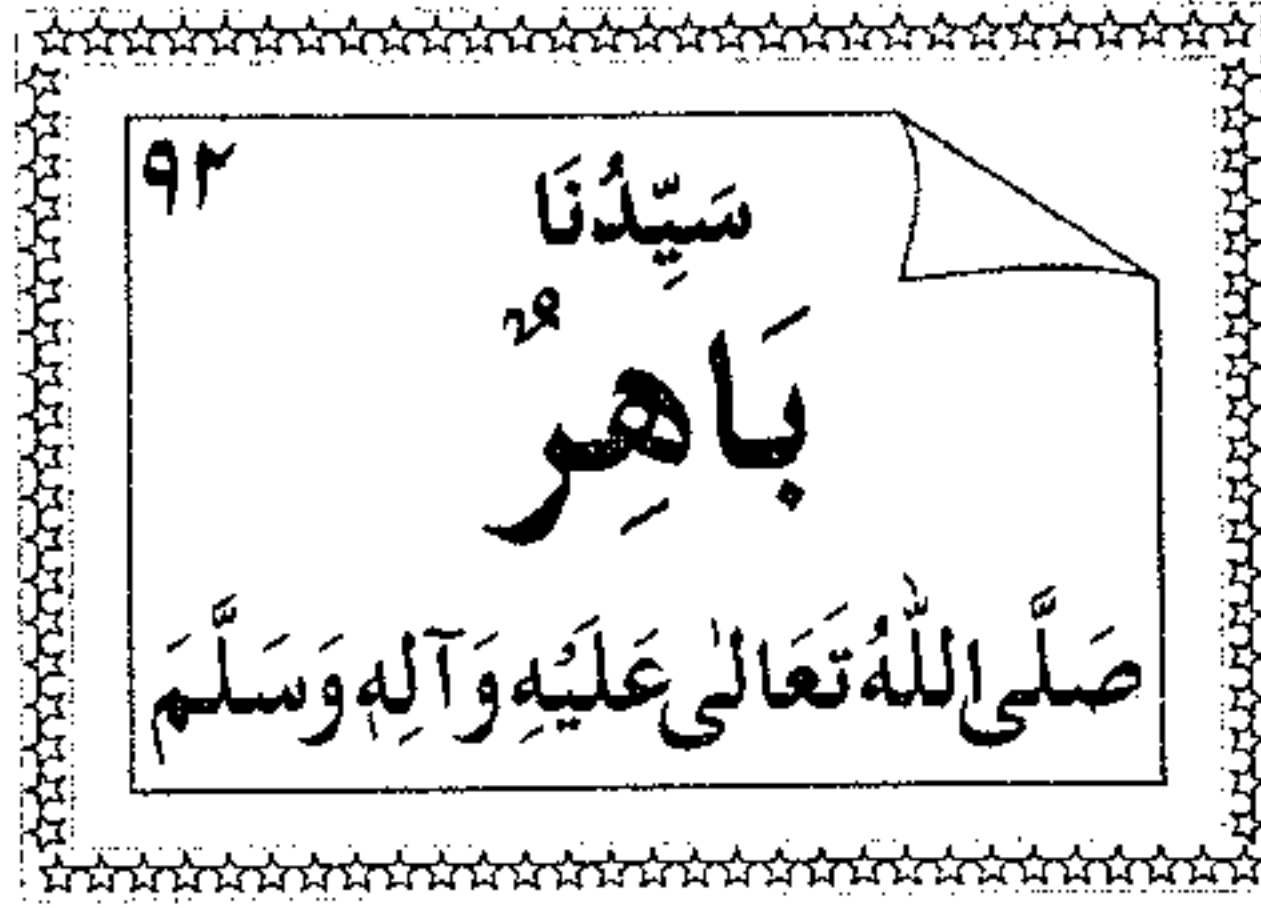 ۹۲
سَیِّدُنَا
بَاهِرٌ
صَلَّی اللّٰهُ تَعَالٰی عَلَیْهِ وَآلِهٖ وَسَلَّمَ